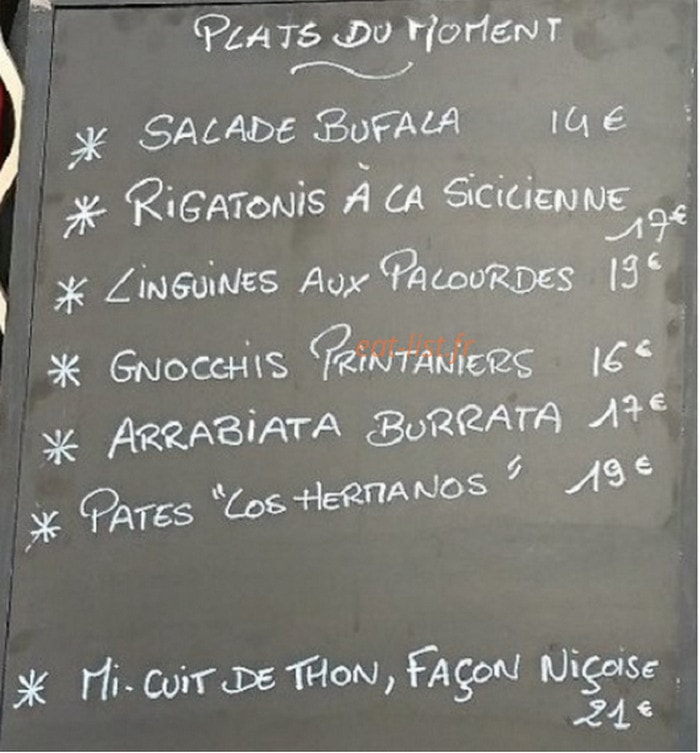 PLATS DU MOMENT
* SALADE BUFALA 14 €
* RIGATONIS À LA SICILIENNE
17 €
* LINGUINES AUX PALOURDES 19 €
eat-list.fr
* GNOCCHIS PRINTANIERS 16 €
* ARRABIATA BURRATA 17 €
* PATES "LOS HERMANOS" 19 €
* MI-CUIT DE THON, FAÇON NIÇOISE
21 €